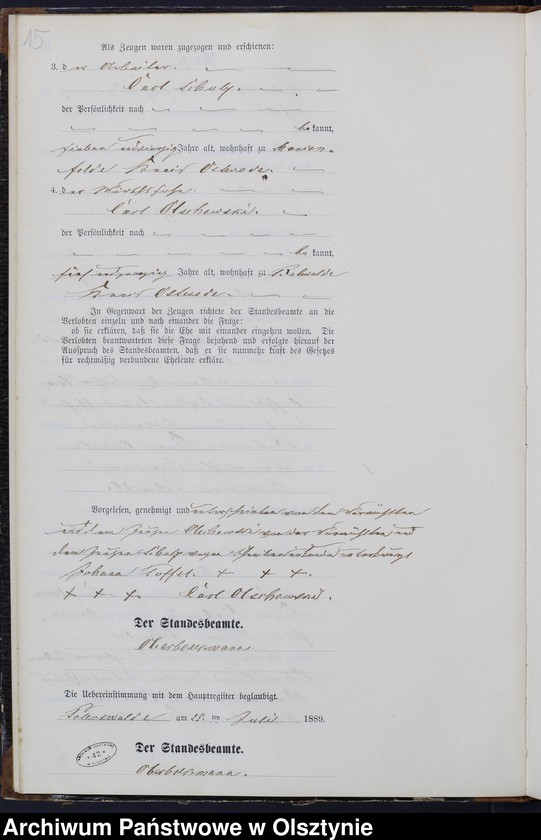 15
Als Zeugen waren zugezogen und erschienen:
3. der Arbeiter
Carl Schulz.
der Persönlichkeit nach
bekannt,
sieben und zwanzig Jahre alt, wohnhaft zu Marien-
felde Kreis Osterode.
4. der
Carl Olschewski.
der Persönlichkeit nach
bekannt,
fünf und zwanzig Jahre alt, wohnhaft zu
Kreis Osterode.
In Gegenwart der Zeugen richtete der Standesbeamte an die
Verlobten einzeln und nach einander die Frage:
ob sie erklären, daß sie die Ehe mit einander eingehen wollen. Die
Verlobten beantworteten diese Frage bejahend und erfolgte hierauf der
Ausspruch des Standesbeamten, daß er sie nunmehr kraft des Gesetzes
für rechtmäßig verbundene Eheleute erkläre.
Vorgelesen, genehmigt und unterschrieben von dem
und dem Zeugen Olschewski von der und
dem Zeugen Schulz wegen
Johann + + +.
+ + + Carl Olschewski.
Der Standesbeamte.
Die Uebereinstimmung mit dem Hauptregister beglaubigt.
am 25. ten Juli 1889.
Der Standesbeamte.
42
Archiwum Państwowe w Olsztynie